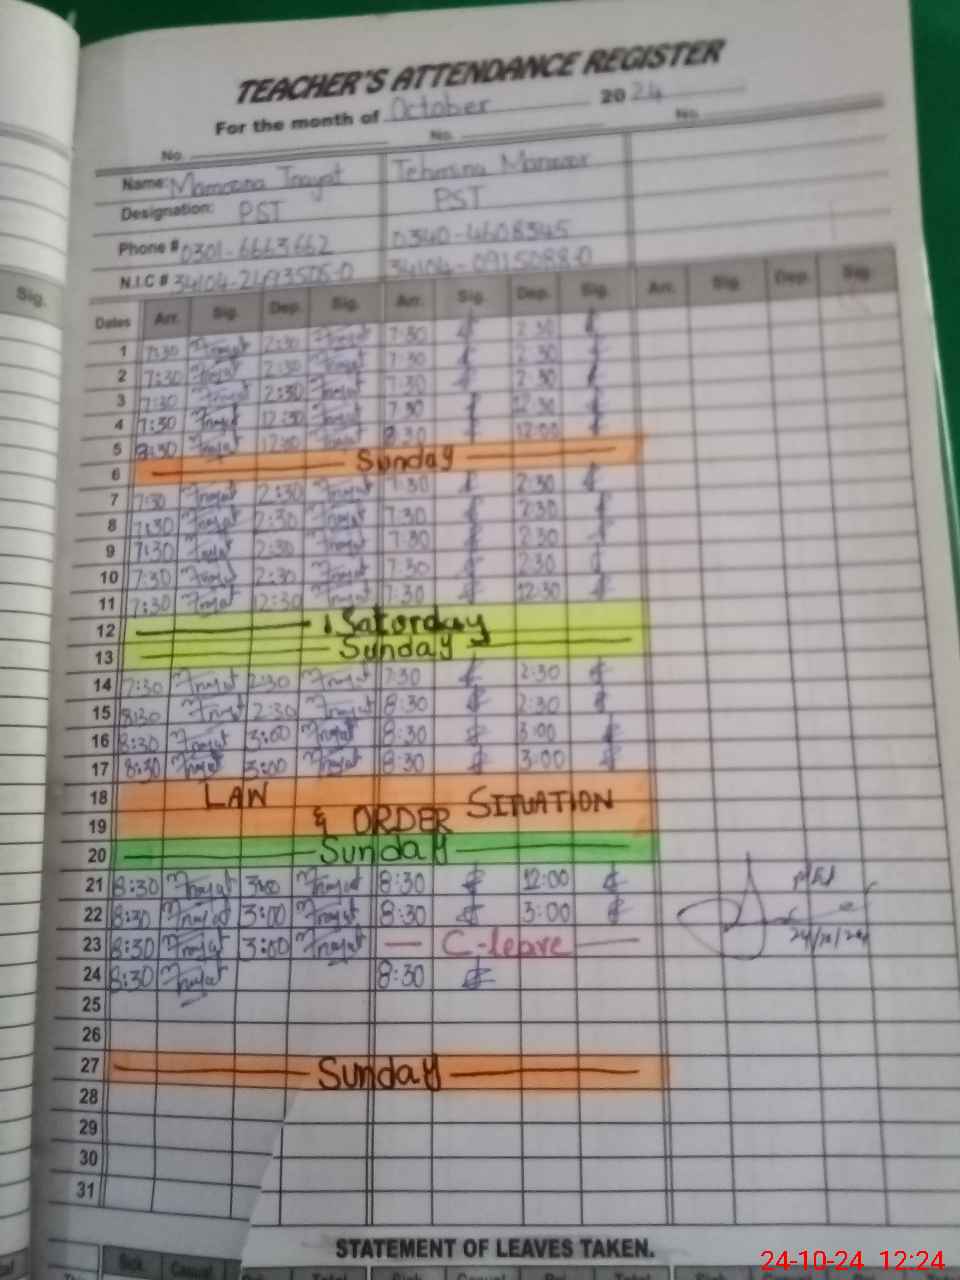 TEACHER'S ATTENDANCE REGISTER
For the month of October 2024
No. No. No.
Name: Inayat Tehmina
Designation: PST PST
Phone # 0301-6663662 0340-4608345
N.I.C # 34104-2693506-0 34104-0915088-0
Sig.
Dates Arr. Sig. Dep. Sig. Arr. Sig. Dep. Sig. Arr. Sig. Dep. Sig.
1 7:30 Inayat 2:30 Inayat 7:30 2:30
2 7:30 Inayat 2:30 Inayat 7:30 2:30
3 7:30 Inayat 2:30 Inayat 7:30 2:30
4 7:30 Inayat 12:30 Inayat 7:30 12:30
5 8:30 Inayat 12:00 Inayat 8:30 12:00
6 Sunday
7 7:30 Inayat 2:30 Inayat 7:30 2:30
8 7:30 Inayat 2:30 Inayat 7:30 2:30
9 7:30 Inayat 2:30 Inayat 7:30 2:30
10 7:30 Inayat 2:30 Inayat 7:30 2:30
11 7:30 Inayat 12:30 Inayat 7:30 12:30
12 Saturday
13 Sunday
14 7:30 Inayat 2:30 Inayat 7:30 2:30
15 8:30 Inayat 2:30 Inayat 8:30 2:30
16 8:30 Inayat 3:00 Inayat 8:30 3:00
17 8:30 Inayat 3:00 Inayat 8:30 3:00
18 LAW SITUATION
19 & ORDER
20 Sunday
21 8:30 Inayat 3:00 Inayat 8:30 12:00
22 8:30 Inayat 3:00 Inayat 8:30 3:00
23 8:30 Inayat 3:00 Inayat C-leave
24/10/24
24 8:30 Inayat 8:30
25
26
27 Sunday
28
29
30
31
STATEMENT OF LEAVES TAKEN.
Sick. Casual Total Sick. Casual Total
24-10-24 12:24